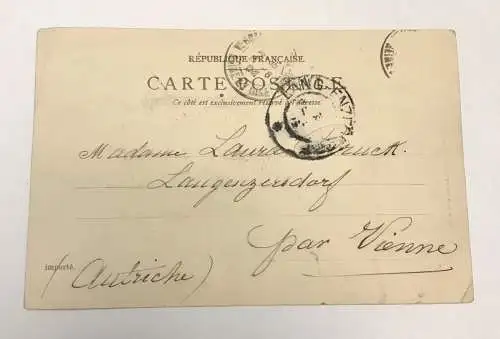 RÉPUBLIQUE FRANÇAISE
CARTE POSTALE
Ce côté est exclusivement réservé à l'adresse
Madame Laura
Langenzersdorf
par Vienne
importé.
(Autriche)